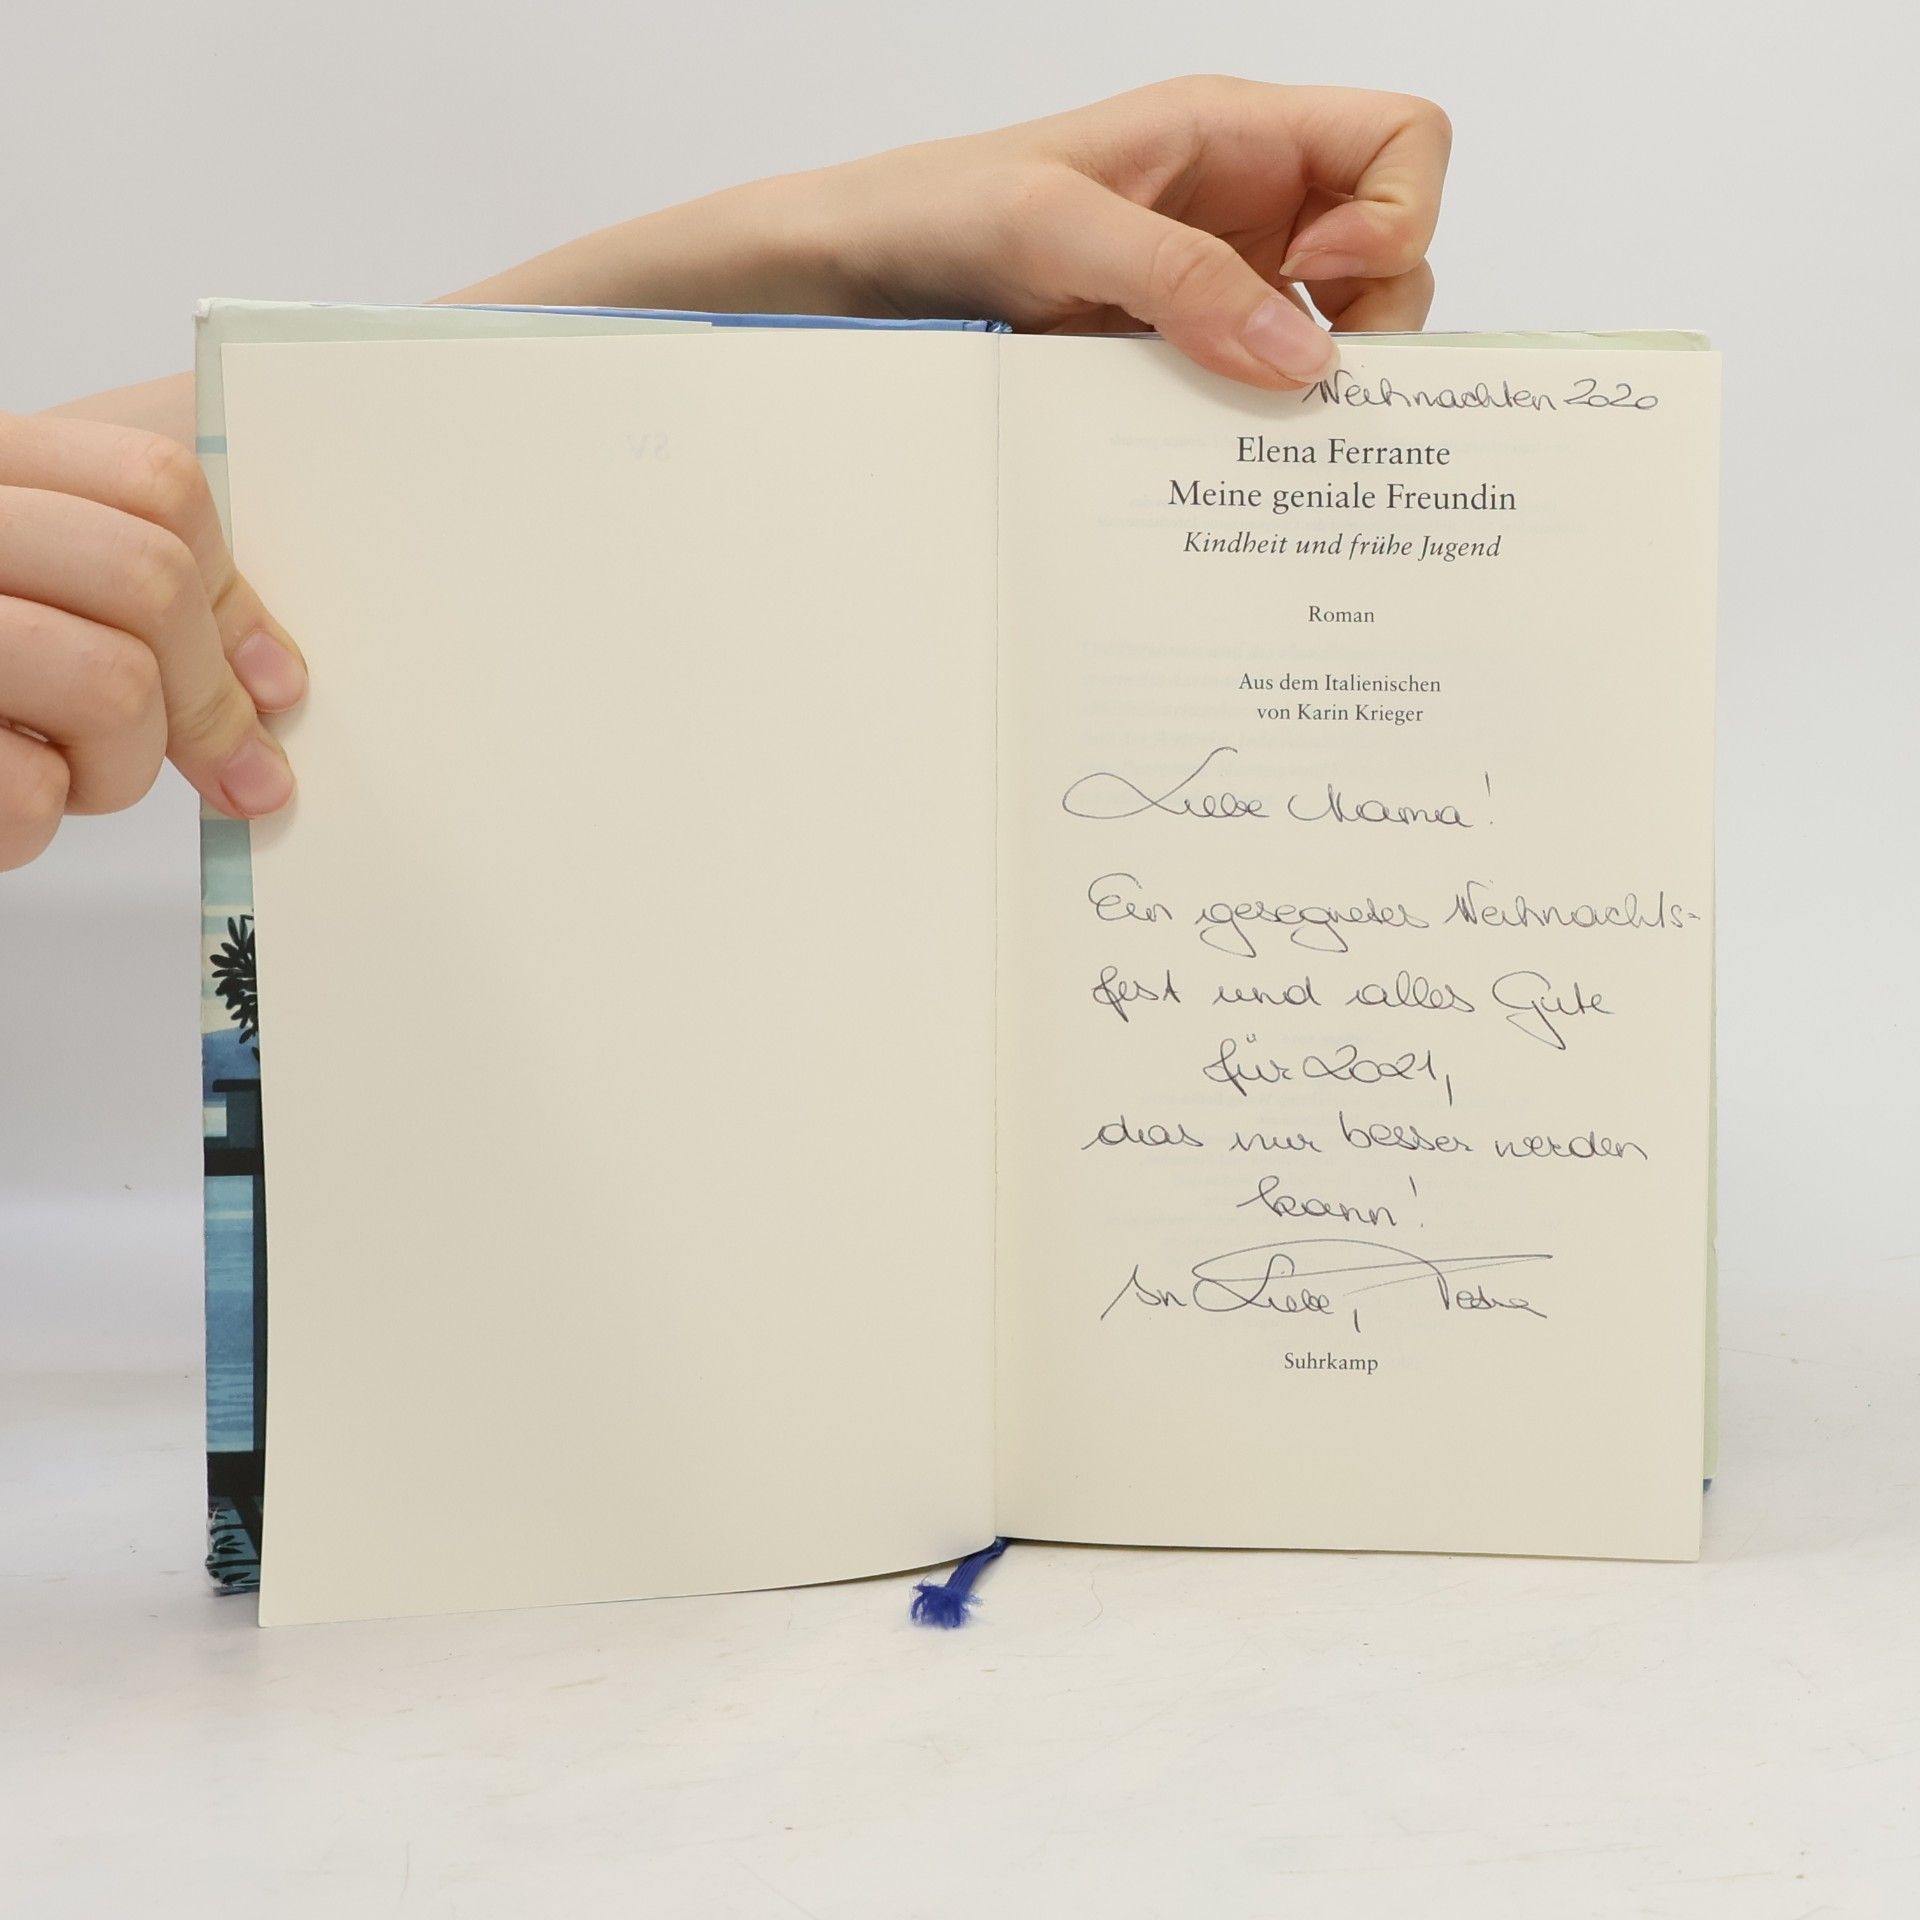 Weihnachten 2020
Elena Ferrante
Meine geniale Freundin
Kindheit und frühe Jugend
Roman
Aus dem Italienischen
von Karin Krieger
Liebe Mama!
Ein gesegnetes Weihnachts-
fest und alles Gute
für 2021,
das nur besser werden
kann!
In Liebe, Petra
Suhrkamp